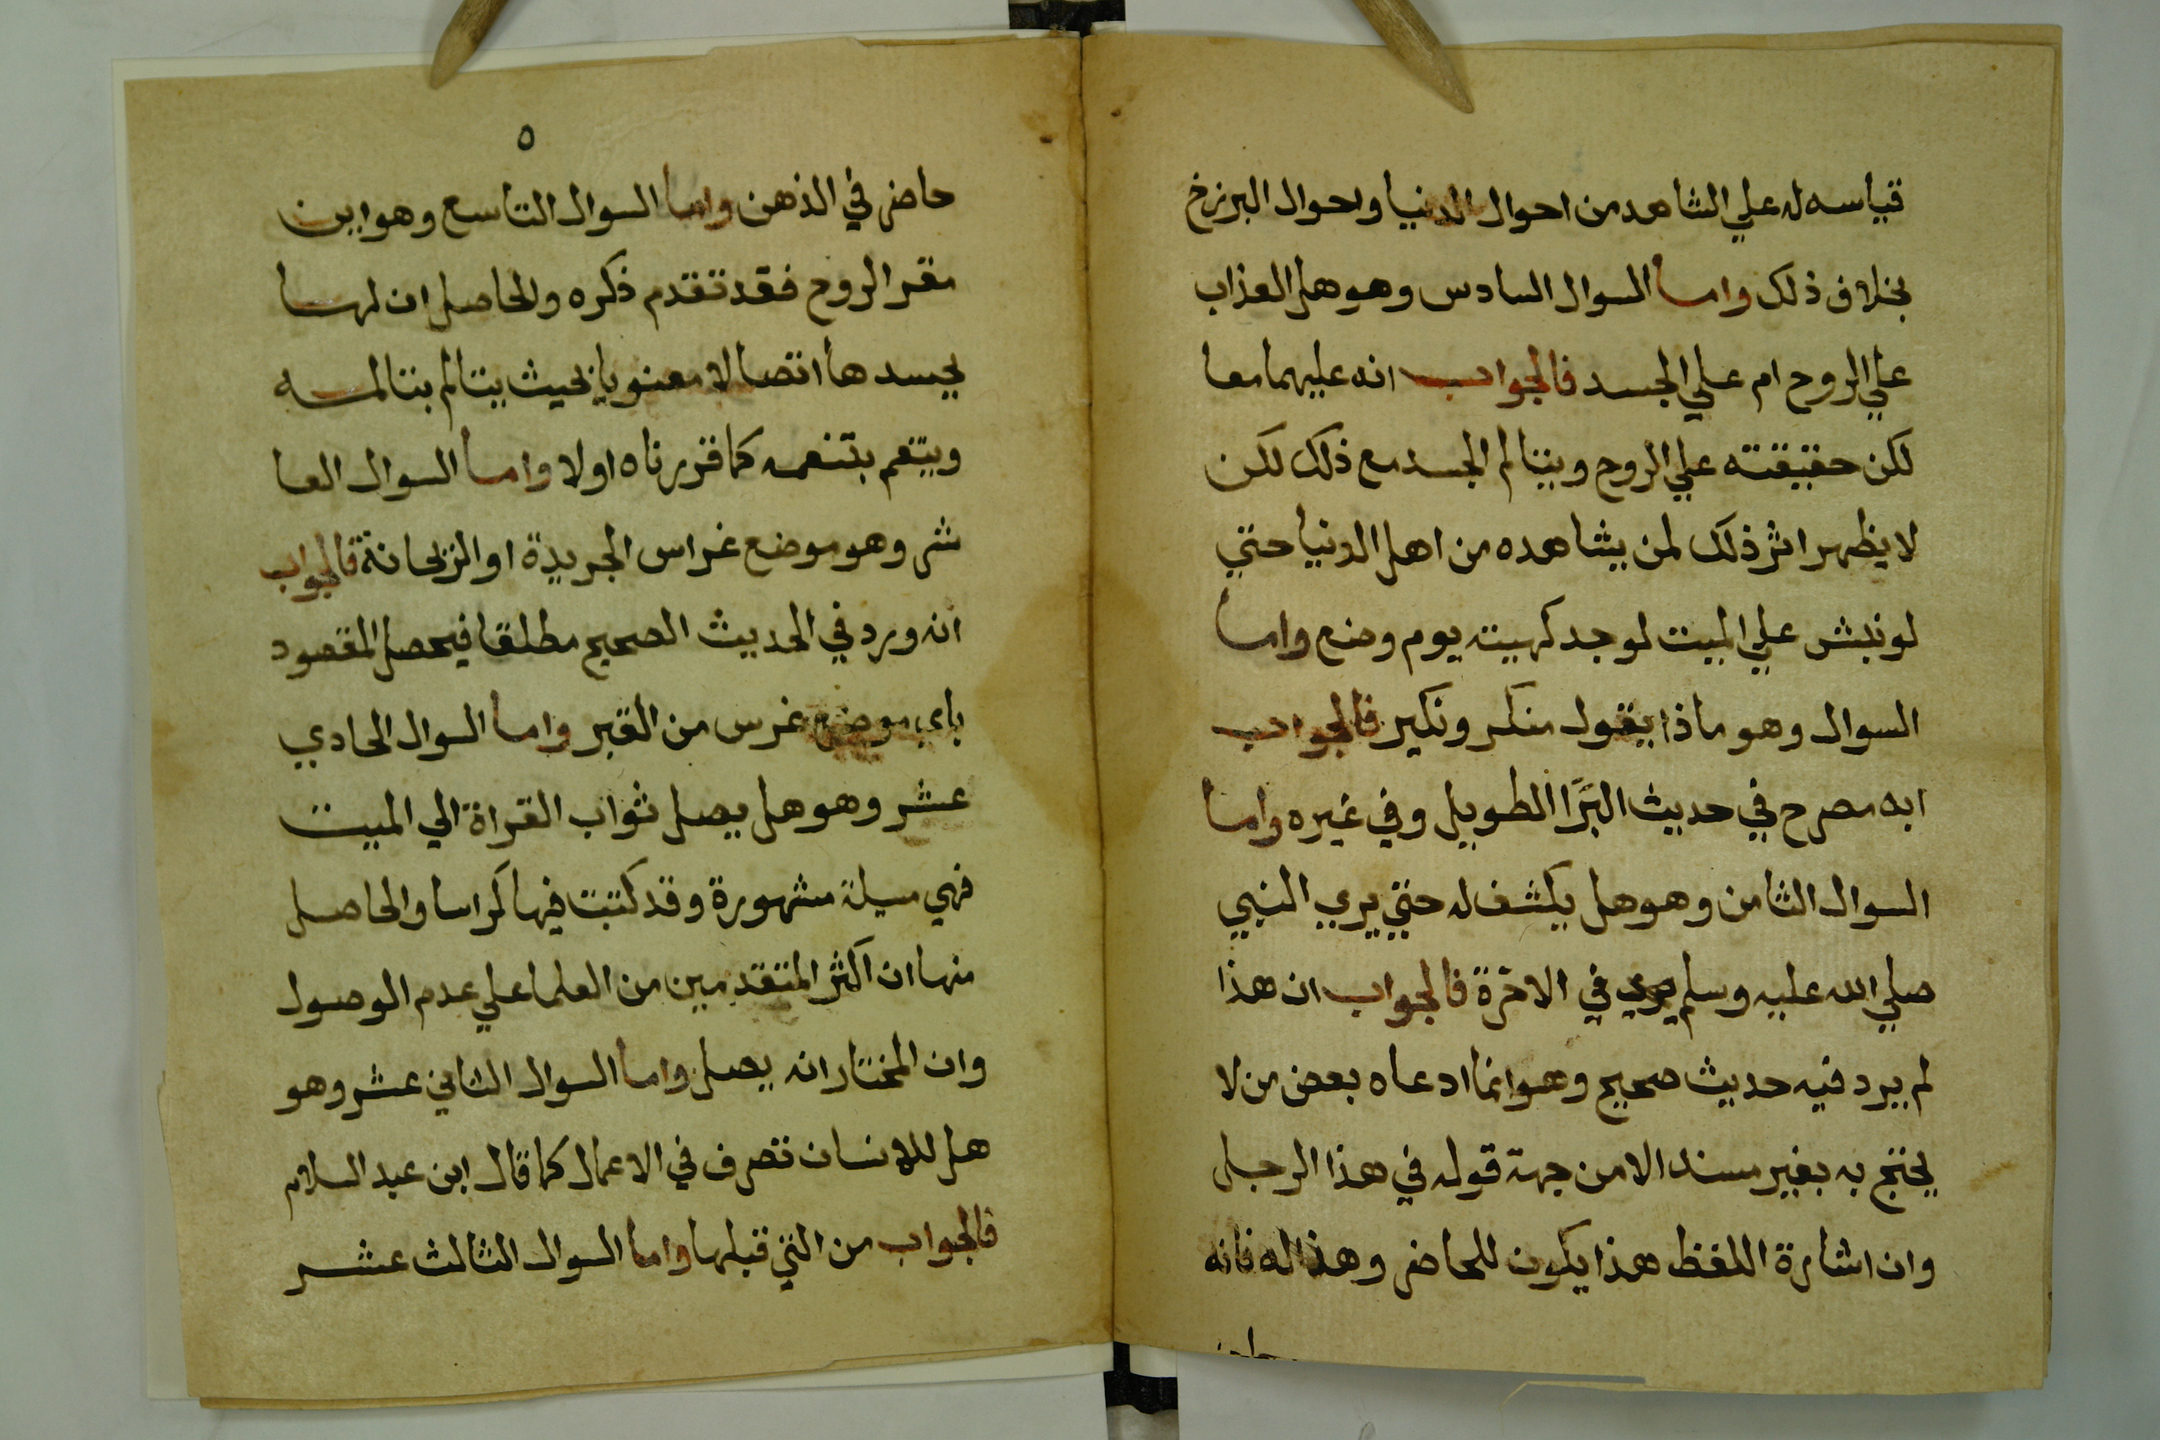 قياسه له علي الشاهد من احوال الدنيا واحوال البرزخ
بخلاف ذلك واما السوال السادس وهو هل العذاب
علي الروح ام علي الجسد فالجواب انه عليهما معا
لكن حقيقته علي الروح ويتالم الجسد مع ذلك لكن
لا يظهر اثر ذلك لمن يشاهده من اهل الدنيا حتي
لو نبش علي الميت لوجد كهيته يوم وضع واما
السوال وهو ماذا يقول منكر ونكير فالجواب
انه مصرح في حديث البَرَا الطويل وفي غيره واما
السوال الثامن وهو هل يكشف له حتي يري النبي
صلي الله عليه وسلم في الاخرة فالجواب ان هذا
لم يرد فيه حديث صحيح وهو انما ادعاه بعض من لا
يحتج به بغير مسند الا من جهة قوله في هذا الرجل
وان اشارة اللفظ هذا يكون للحاضر وهذا فانه
حاضر
٥
حاضر في الذهن واما السوال التاسع وهو اين
مقر الروح فقد تقدم ذكره والحاصل ان لهسا
بجسدها اتصالا معنويا بحيث يتالم بتالمسه
ويتنعم بتنعمه كما قررناه اولا واما السوال العا
شر وهو موضع غراس الجريدة او الريحانة فالجواب
انه ورد في الحديث الصحيح مطلقا فيحصل المقصود
باي موضع غرس من القبر واما السوال الحادي
عشر وهو هل يصل ثواب القراة الي الميت
فهي مسيلة مشهورة وقد كتبت فيها كراسا والحاصل
منها ان اكثر المتقدمين من العلما علي عدم الوصول
وان المختار انه يصل واما السوال الثاني عشر وهو
هل للانسان تصرف في الاعمال كما قال ابن عبد السلام
فالجواب من التي قبلها واما السوال الثالث عشر